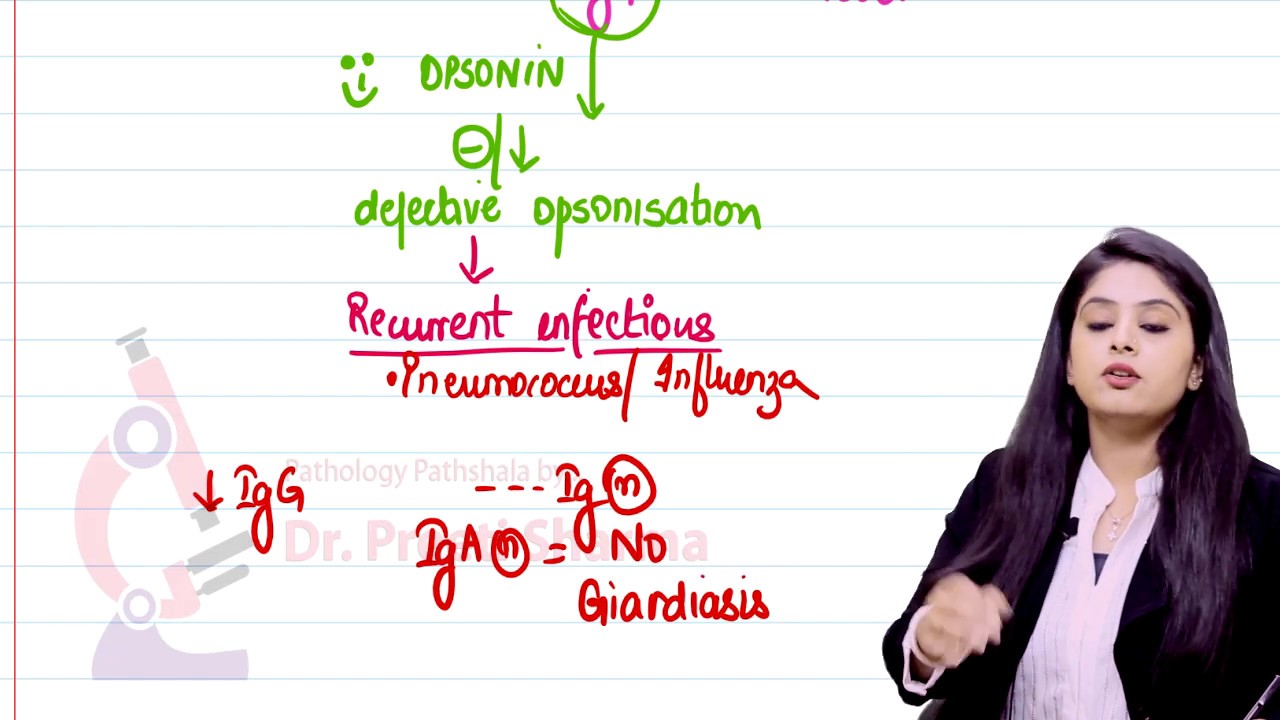 OPSONIN
⊖/↓
defective opsonisation
↓
Recurrent infectious
•Pneumococcus/ Influenza
Pathology Pathshala by
↓ IgG --- Ig(m)
Dr. Preeti Sharma
IgA (n) = No
Giardiasis